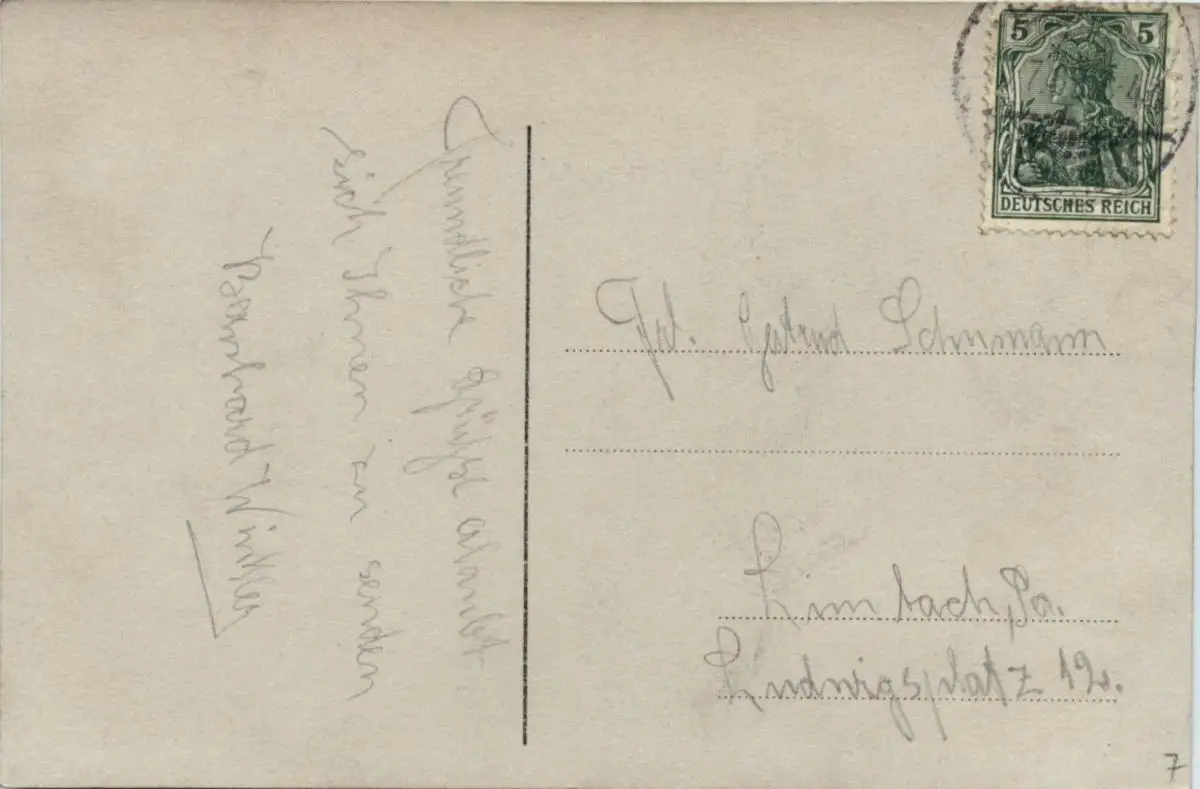 Freundliche Grüße erlaubt
sich Ihnen an senden
Bernhard Winkler
5 5
DEUTSCHES REICH
Frl. Gertrud Schumann
Limbach, Sa.
Ludwigsplatz 12.
7